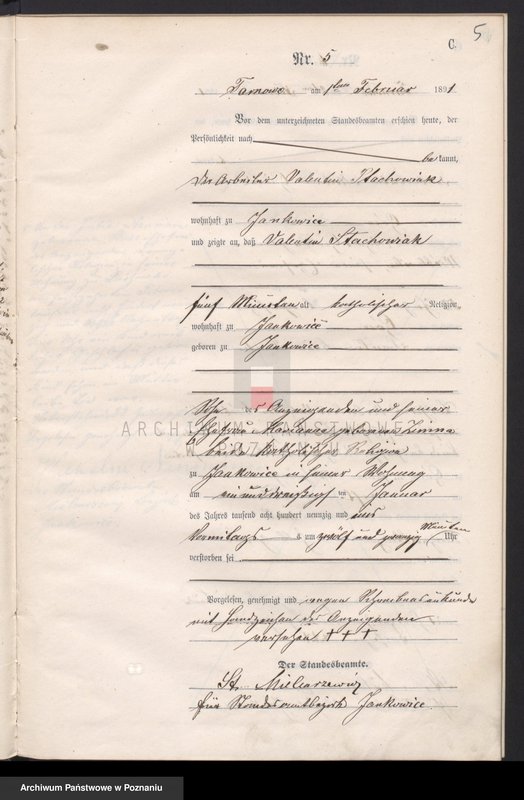 5
C.
Nr. 5
Tarnowo am 1ten Februar 1891
Vor dem unterzeichneten Standesbeamten erschien heute, der
Persönlichkeit nach
bekannt,
der Arbeiter Valentin Stachowiak
wohnhaft zu Jankowice
und zeigte an, daß Valentin Stachowiak
fünf Minuten alt katholischer Religion,
wohnhaft zu Jankowice
geboren zu Jankowice
Sohn des Anzeigenden und seiner
Ehefrau Marianna geborenen
beide katholischer Religion
zu Jankowice in seiner Wohnung
am einunddreißigsten Januar
des Jahres tausend acht hundert neunzig und eins
Vormittags um zwölf und zwanzig Minuten Uhr
verstorben sei
Vorgelesen, genehmigt und wegen Schreibensunkunde
mit Handzeichen des Anzeigenden
versehen +++
Der Standesbeamte.
St.
für Standesamtbezirk Jankowice
ARCHIWUM PAŃSTWOWE
W POZNANIU
Archiwum Państwowe w Poznaniu